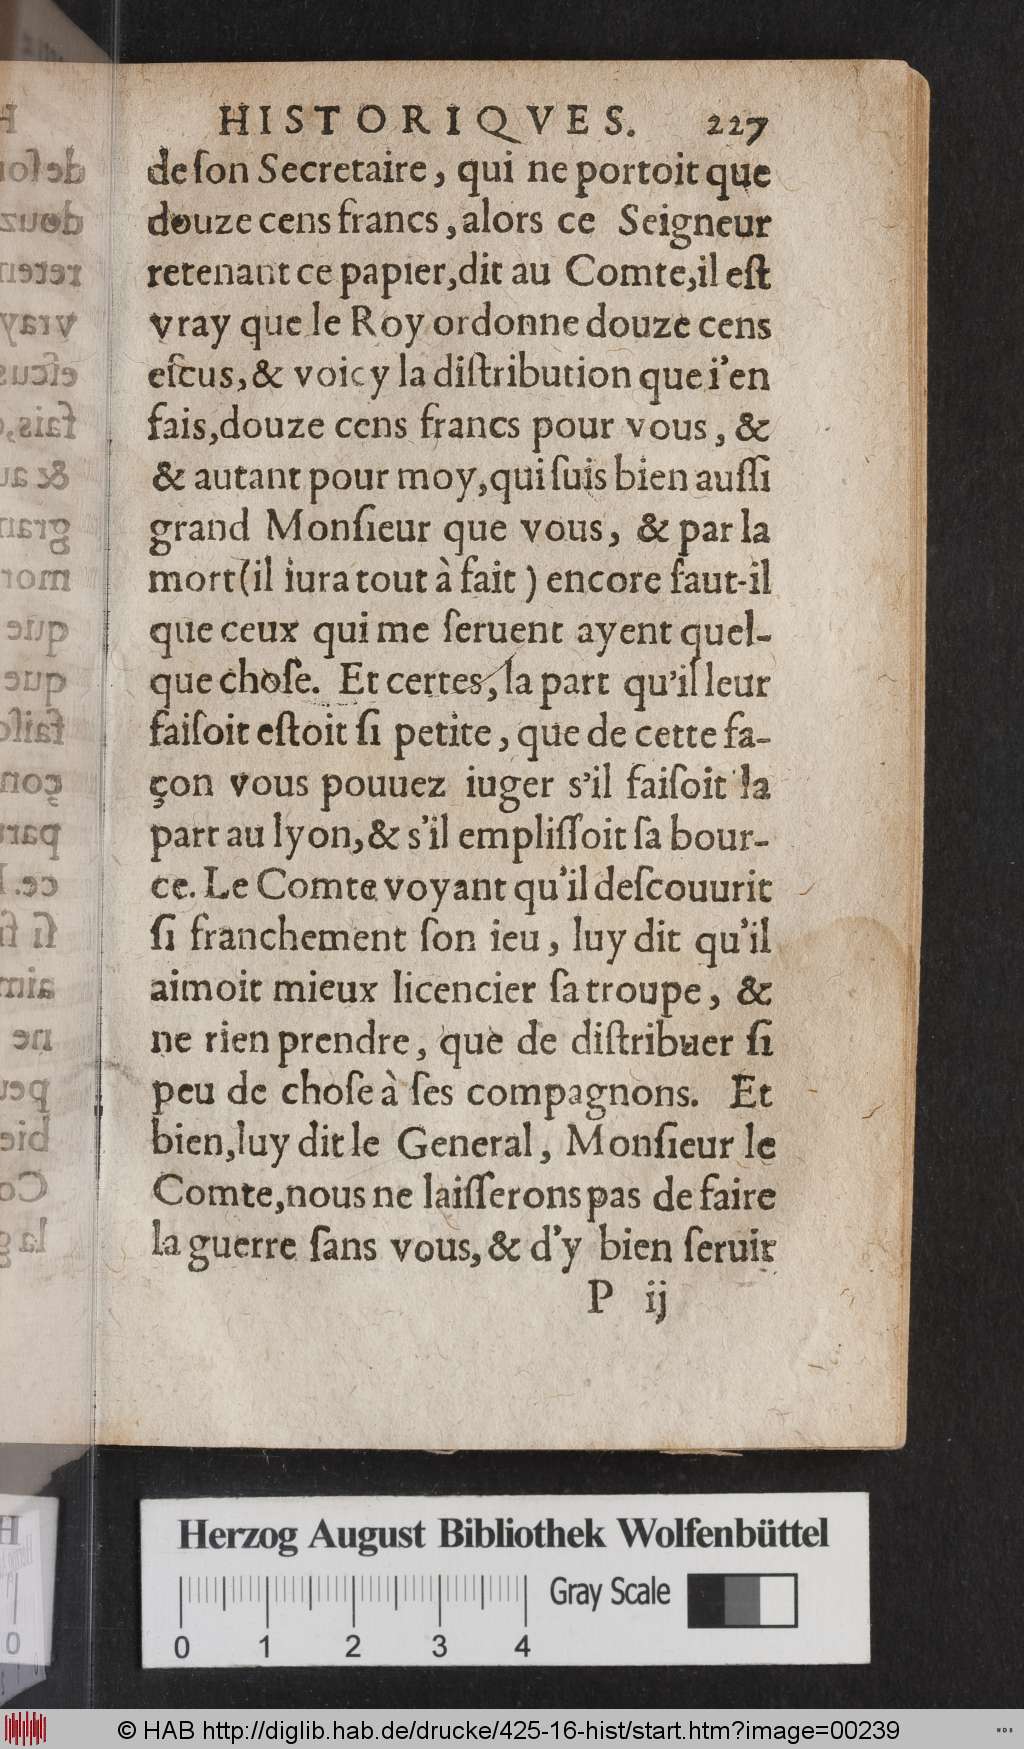 HISTORIQVES. 227
de ſon Secretaire, qui ne portoit que
douze cens francs, alors ce Seigneur
retenant ce papier, dit au Comte, il eſt
vray que le Roy ordonne douze cens
eſcus, & voicy la diſtribution que i'en
fais, douze cens francs pour vous, &
& autant pour moy, qui ſuis bien auſſi
grand Monſieur que vous, & par la
mort (il iura tout à fait) encore faut-il
que ceux qui me ſeruent ayent quel-
que choſe. Et certes, la part qu'il leur
faiſoit eſtoit ſi petite, que de cette fa-
çon vous pouuez iuger s'il faiſoit la
part au lyon, & s'il empliſſoit ſa bour-
ce. Le Comte voyant qu'il deſcouurit
ſi franchement ſon ieu, luy dit qu'il
aimoit mieux licencier ſa troupe, &
ne rien prendre, que de diſtribuer ſi
peu de choſe à ſes compagnons. Et
bien, luy dit le General, Monſieur le
Comte, nous ne laiſſerons pas de faire
la guerre ſans vous, & d'y bien ſeruir
P ij
Herzog August Bibliothek Wolfenbüttel
Gray Scale
0 1 2 3 4
© HAB http://diglib.hab.de/drucke/425-16-hist/start.htm?image=00239